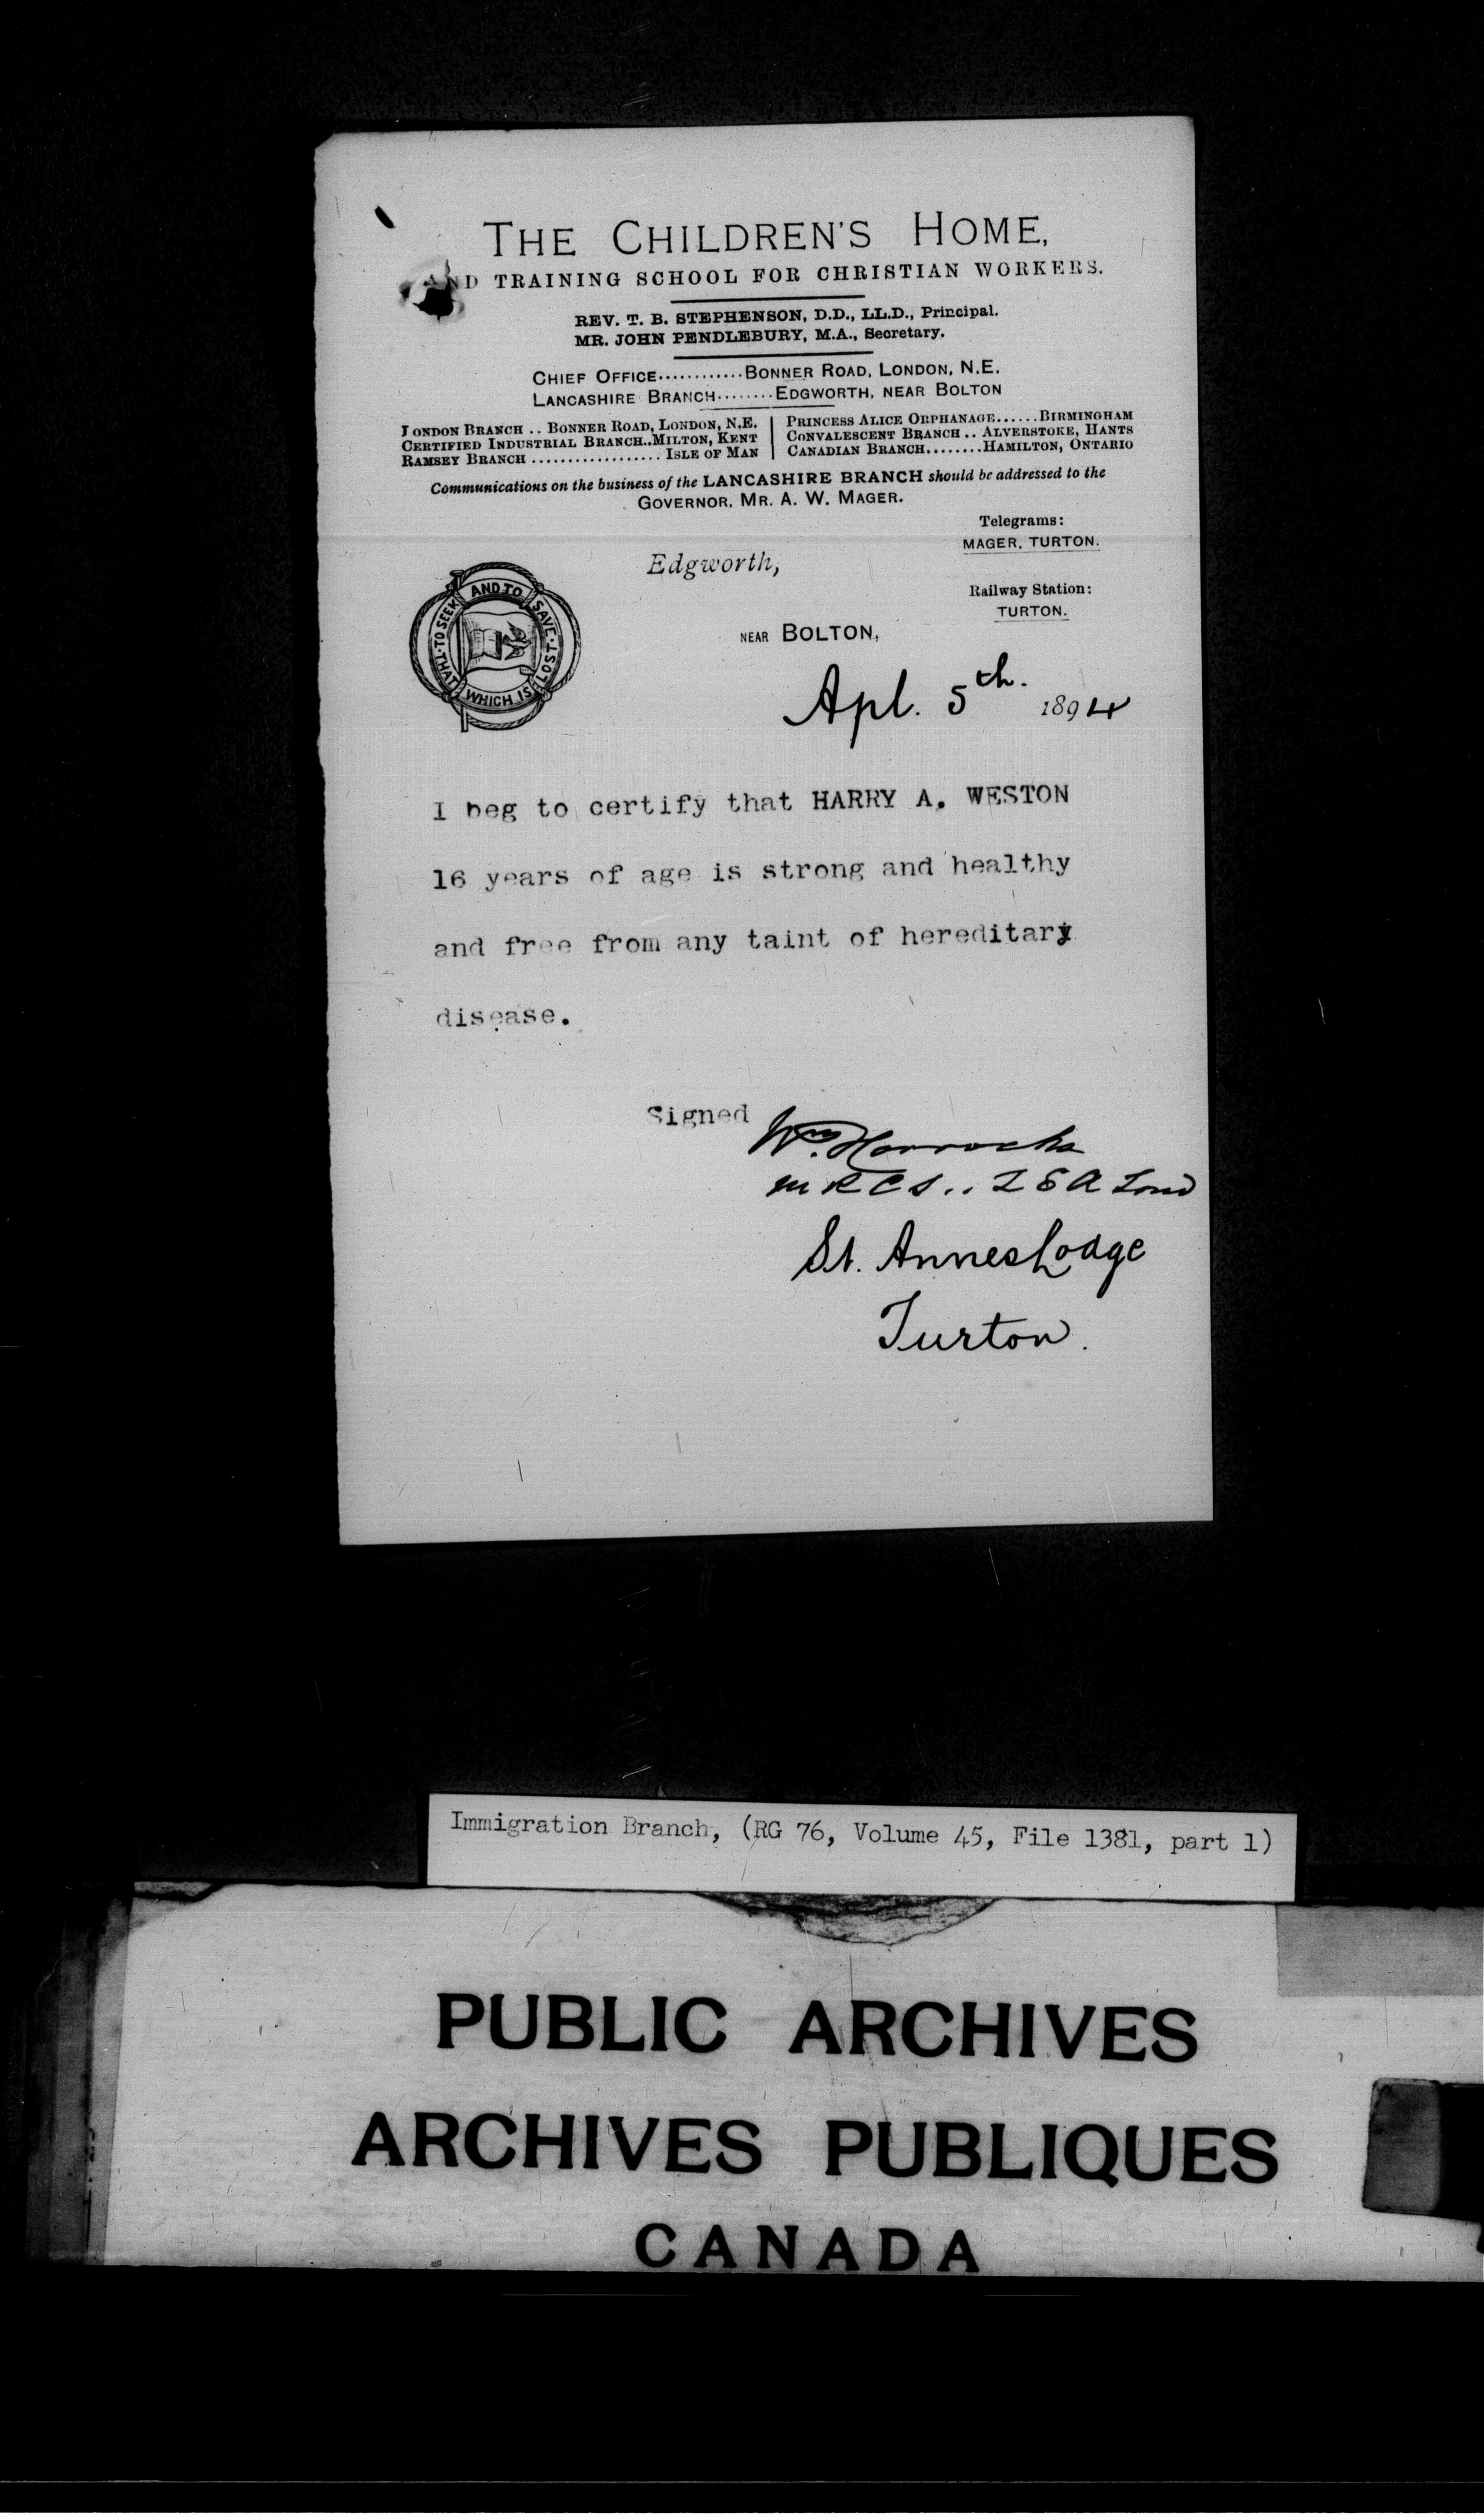 THE CHILDREN'S HOME,
AND TRAINING SCHOOL FOR CHRISTIAN WORKERS.
REV. T. B. STEPHENSON, D.D., LL.D., Principal.
MR. JOHN PENDLEBURY, M.A., Secretary.
CHIEF OFFICE............BONNER ROAD, LONDON, N.E.
LANCASHIRE BRANCH........EDGWORTH, NEAR BOLTON
LONDON BRANCH .. BONNER ROAD, LONDON, N.E.
CERTIFIED INDUSTRIAL BRANCH..MILTON, KENT
RAMSEY BRANCH .................. ISLE OF MAN
PRINCESS ALICE ORPHANAGE......BIRMINGHAM
CONVALESCENT BRANCH .. ALVERSTOKE, HANTS
CANADIAN BRANCH........HAMILTON, ONTARIO
Communications on the business of the LANCASHIRE BRANCH should be addressed to the
GOVERNOR, MR. A. W. MAGER.
Telegrams:
MAGER, TURTON.
Railway Station:
TURTON.
TO SEEK AND TO SAVE THAT WHICH IS LOST
Edgworth,
NEAR BOLTON,
Apl. 5th. 1894
I beg to certify that HARRY A. WESTON
16 years of age is strong and healthy
and free from any taint of hereditary
disease.
Signed Wm. Horrocks
MRCS.. LSA Lond
St. Annes Lodge
Turton.
Immigration Branch, (RG 76, Volume 45, File 1381, part 1)
PUBLIC ARCHIVES
ARCHIVES PUBLIQUES
CANADA